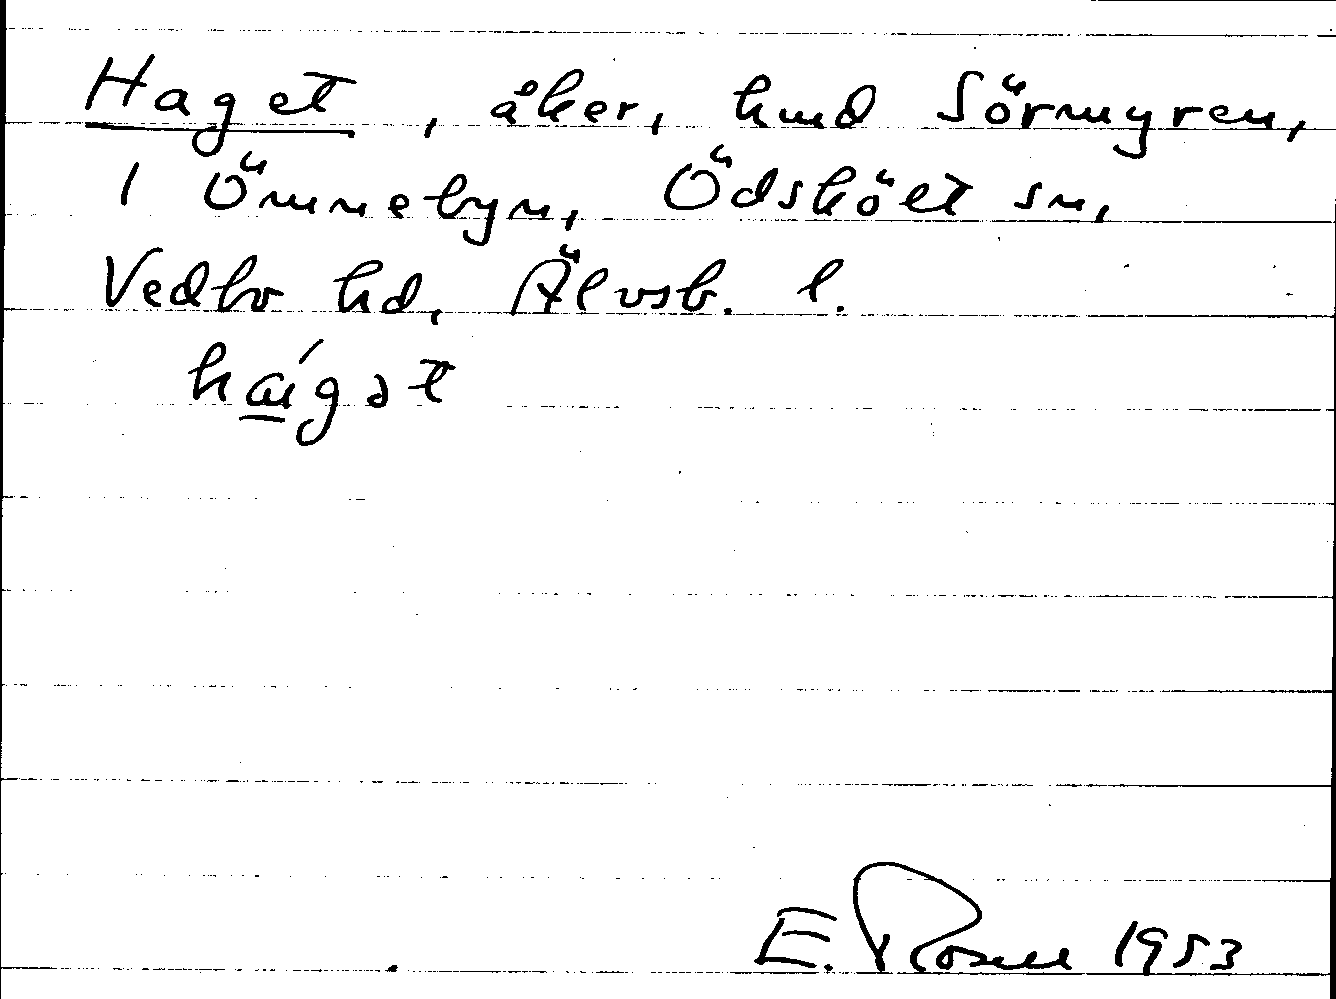 Haget, åker, hmd Sörmyren,
1 Ömmebyn, Ödsköłt sn,
Vedbo hd, Älvsb. l.
há̱gət
E. Rosell 1953